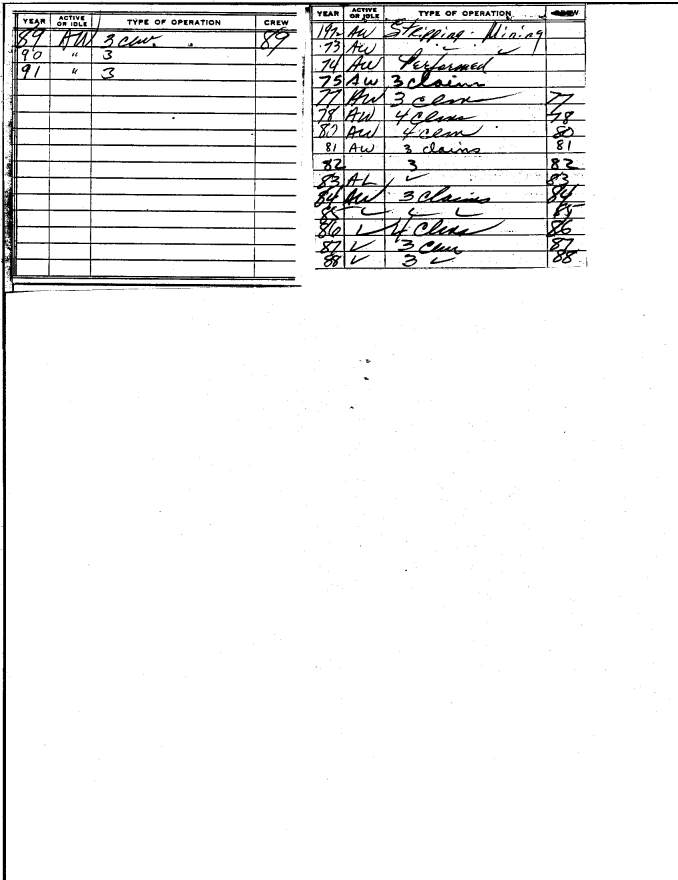 YEAR ACTIVE OR IDLE TYPE OF OPERATION CREW
89 AW 3 clm. 89
90 " 3
91 " 3
YEAR ACTIVE OR IDLE TYPE OF OPERATION
1972 AW Stripping - Mining
73 AW ✓ ✓
74 AW Performed
75 AW 3 claim
77 AW 3 clms 77
78 AW 4 clms 78
80 AW 4 clm 80
81 AW 3 claims 81
82 3 82
83 AL ✓ 83
84 AW 3 claims 84
85 ✓ ✓ ✓ 85
86 ✓ 4 clms 86
87 ✓ 3 clm 87
88 ✓ 3 ✓ 88